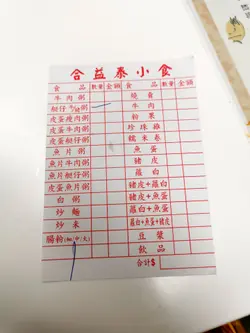 合益泰小食
食 品 數量 金額 食 品 數量 金額
牛肉粥 燒賣
艇仔 粥 牛肉
皮蛋瘦肉粥 粉果
皮蛋牛肉粥 珍珠雞
皮蛋艇仔粥 糯米卷
魚片粥 魚蛋
魚片牛肉粥 豬皮
魚片艇仔粥 蘿白
皮蛋魚片粥 豬皮+蘿白
白粥 豬皮+魚蛋
炒麵 蘿白+魚蛋
炒米 蘿白+魚蛋+豬皮
腸粉(細/中/大) 豆漿
飲品
合計$